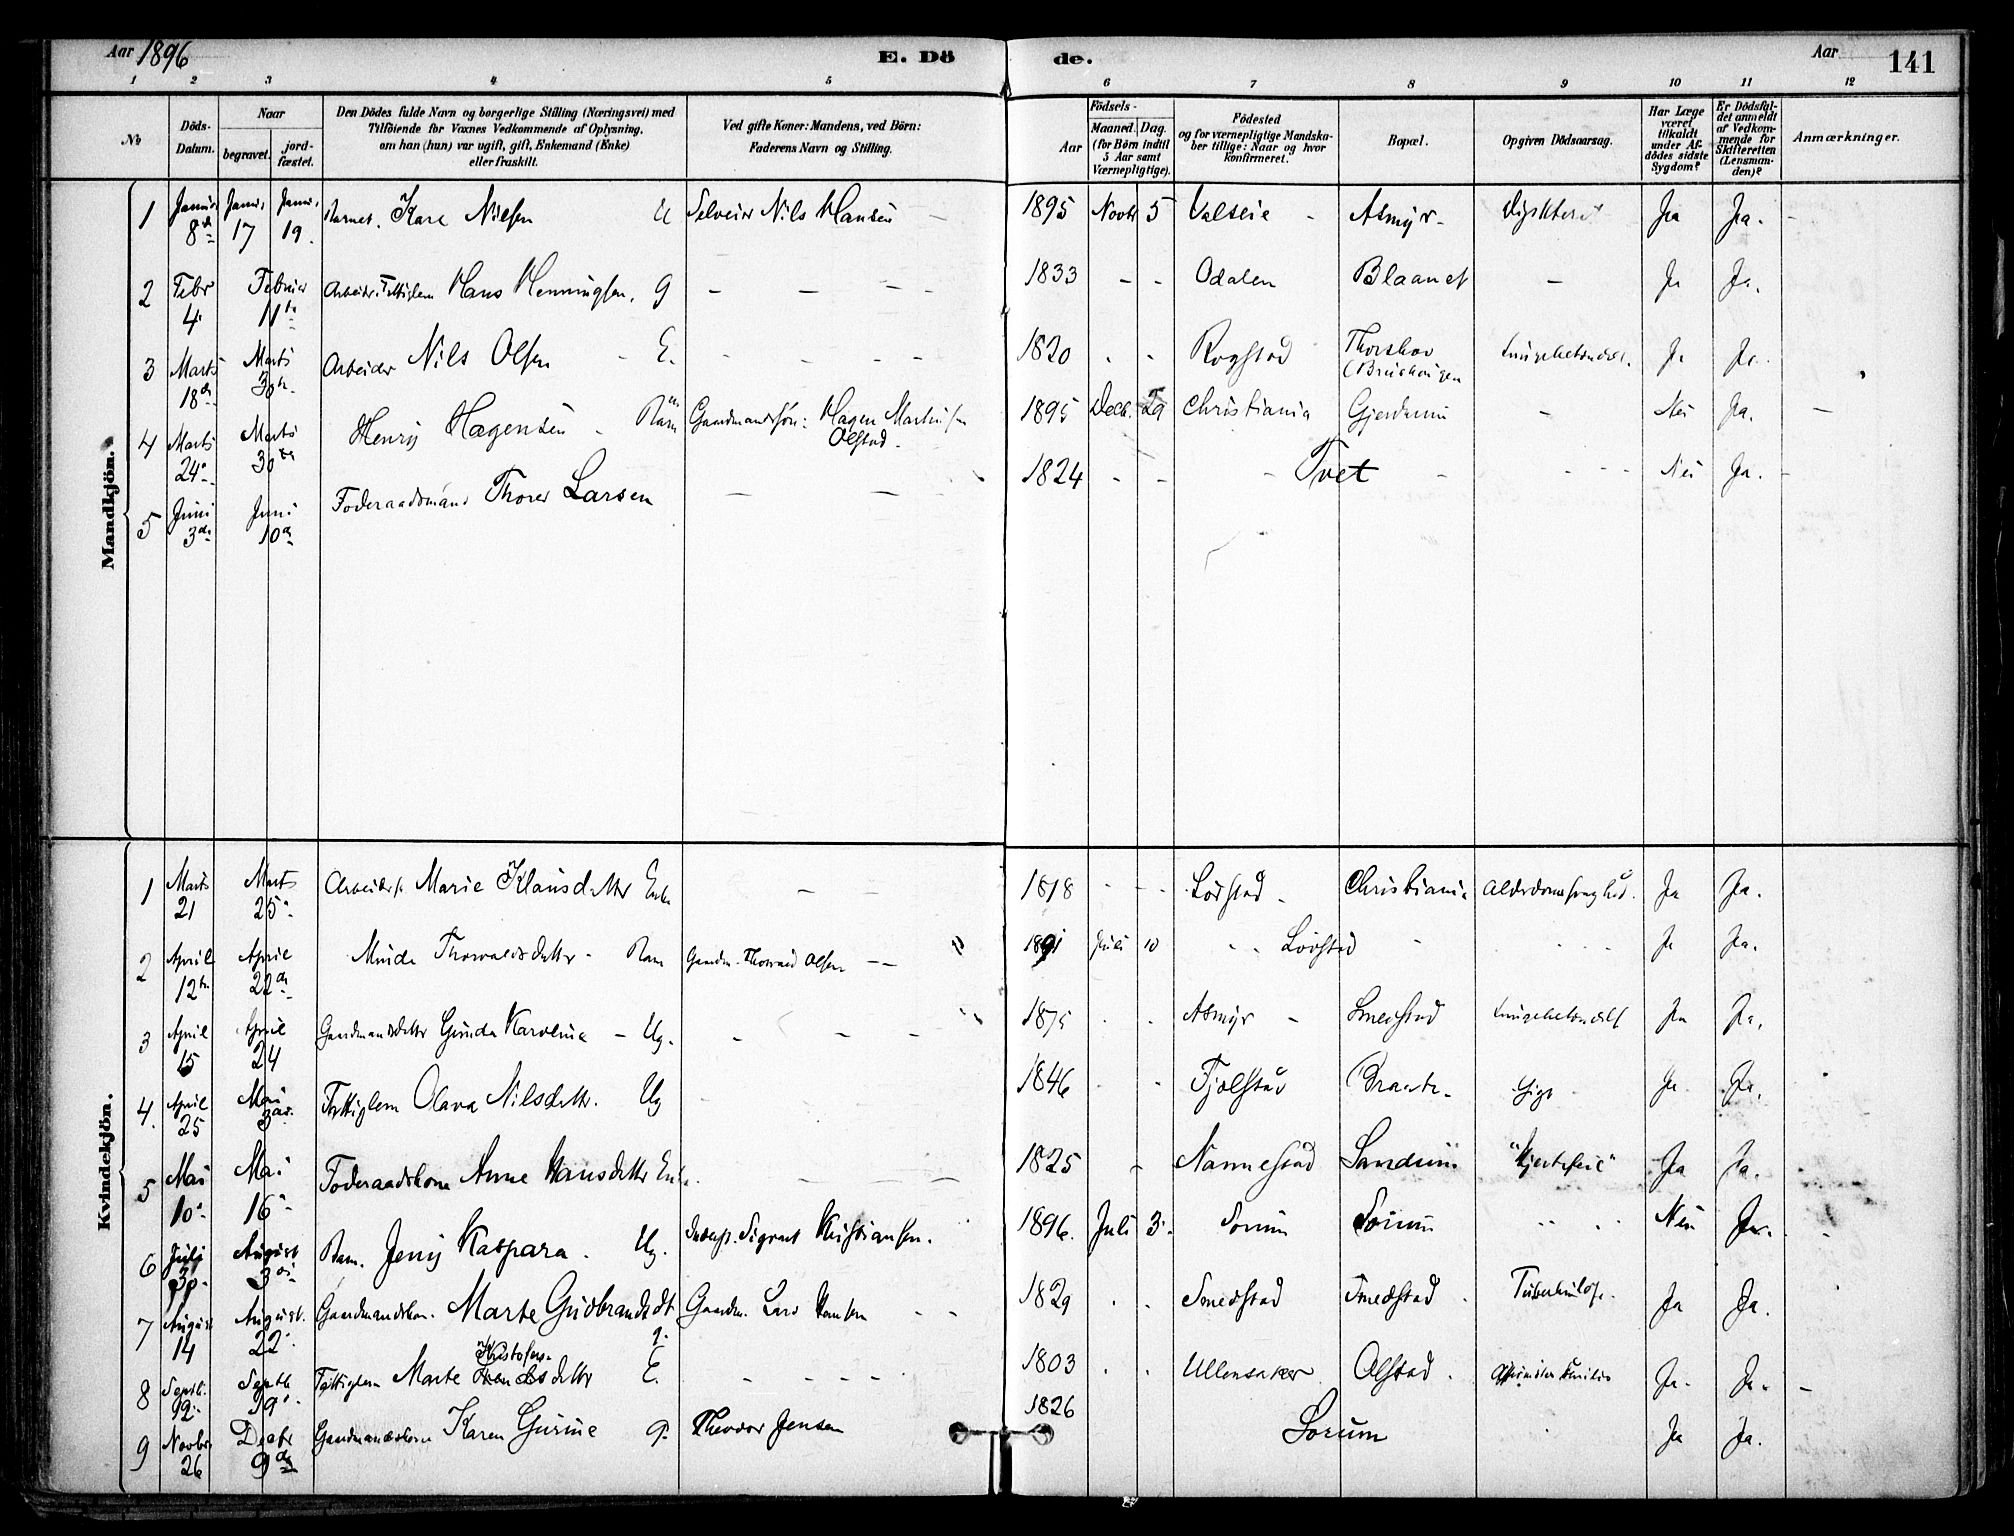 Aar 1896 E. Döde. Aar 141
1 2 3 4 5 6 7 8 9 10 11 12
No Döds-Datum. Naar begravet. jordfæstet. Den Dödes fulde Navn og borgerlige Stilling (Næringsvei) med Tilföiende for Voxnes Vedkommende af Oplysning, om han (hun) var ugift, gift, Enkemand (Enke) eller fraskilt. Ved gifte Koner: Mandens, ved Börn: Faderens Navn og Stilling. Födsels- Aar Maaned. Dag. (for Börn indtil 5 Aar samt Værnepligtige). Födested og for værnepligtige Mandskaber tillige: Naar og hvor konfirmeret. Bopæl. Opgiven Dödsaarsag. Har Læge været tilkaldt under Afdödes sidste Sygdom? Er Dödsfaldet anmeldt af Vedkommende for Skifteretten (Lensmanden)? Anmærkninger.
Mandkjön.
1 Januar 8de Januar 17 Januar 19. Barnet. Kare Nilsen U Selveier Nils Hansen – 1895 Novbr 5 Valseie - Asmyr - Ja Ja. -
2 Febr 4. Februar 11te Arbeider. Fattiglem Hans Henningsen. g – – – – 1833 – - Odalen Blaanet – Ja Ja.
3 Marts 18de Marts 30te Arbeider Nils Olsen - E. - - - - 1820 - - Rogstad Thorshov Lungebetændelse. Ja Ja.
4 Marts 24. Marts 30te Henry Hagensen - Barn Gaardmandssøn: Hagen Martinsen Olstad. 1895 Decb. 29 Christiania Gjerdrum - Nei Ja. –
5 Juni 3de Juni 10de Föderaadsmand Thorer Larsen – – – 1824 - - - Tvet - - - - Nei Ja. -
Kvindekjön.
1 Marts 21 Marts 25. Arbeider Marie Klausdatter Enke – – 1818 - - - Lörstad - Christiania Alderdomssvaghed. Ja Ja.
2 April 12te April 22de Thorvaldsdatter - Barn Gaardm. Thorvald Olsen – – 1891 Juli 10 - - Lörstad - - - Ja Ja.
3 April 15 April 24 Gaardmandsdatter Gunda Karoline – Ug. - – – 1875 - - Asmyr - Smedstad Lungebetændelse Ja Ja.
4. April 25 Mai 3die Fattiglem Olava Nilsdatter. Ug - – – 1846 - - Fjolstad Braate - Gigt - Ja Ja.
5 Mai 10. Mai 16. Föderaadskone Anne Hansdatter Enke. – – – 1825 - Nannestad Sandum "Hjertefeil" Ja Ja.
6 Juli 30. August 3die Barn. Jenny Kaspara. Ug. Sigvart Kristiansen. 1896. Juli 3. Sorum Sorum - - - Nei Ja. -
7 August 14 August. 22. Gaardmandskone. Marte Gudbrandsdt g. Gaardm. Lars Hansen - - 1829 - - Smedstad Smedstad - Tuberkulose. Ja Ja.
8 Septb. 12. Septb 19. Fattiglem Marte Kristofersdatter E. - – - - - 1803 - - Ullensaker Olstad. Ja. Ja. –
9 Novbr 26 Decbr 9de Gaardmandskone Karen Gurine g. Theodor Jensen 1826 Sorum - Ja Ja.